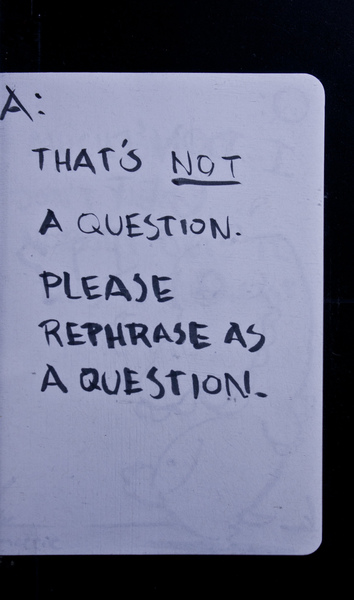 A:
THAT'S NOT
A QUESTION.
PLEASE
REPHRASE AS
A QUESTION.